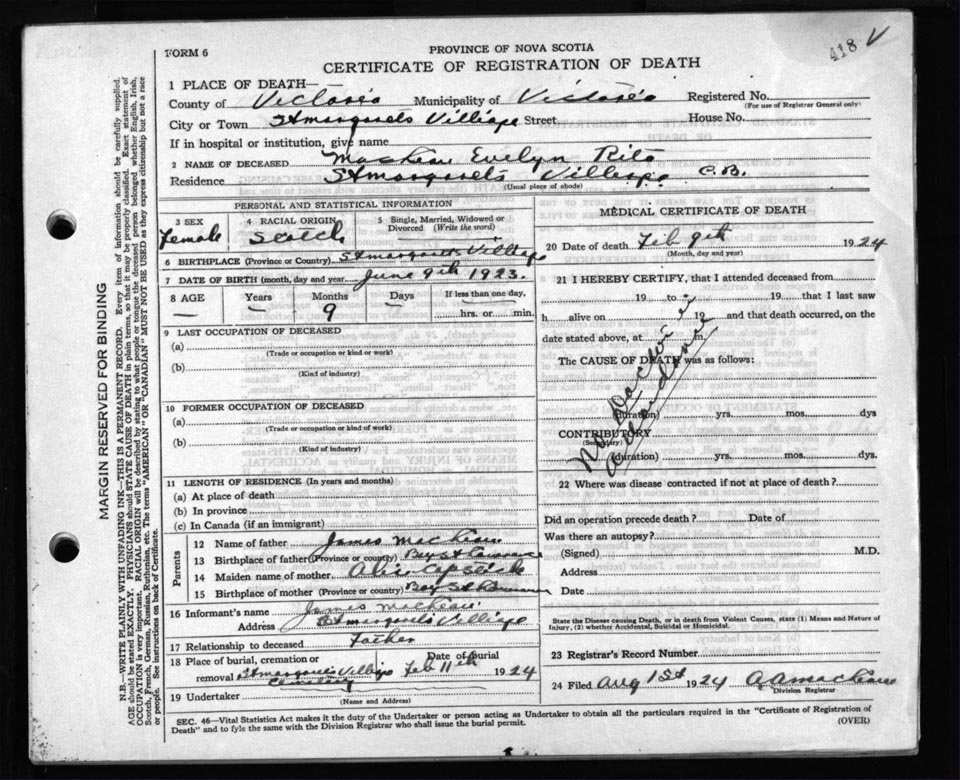 418 V
FORM 6
PROVINCE OF NOVA SCOTIA
CERTIFICATE OF REGISTRATION OF DEATH
1 PLACE OF DEATH—
County of Victoria Municipality of Victoria Registered No.
(For use of Registrar General only)
City or Town St Margarets Villiage Street. House No.
If in hospital or institution, give name
2 NAME OF DECEASED MacLean Evelyn Rita
Residence St Margarets Villiage C.B.
(Usual place of abode)
PERSONAL AND STATISTICAL INFORMATION
3 SEX Female
4 RACIAL ORIGIN Scotch
5 Single, Married, Widowed or Divorced (Write the word)
6 BIRTHPLACE (Province or Country) St Margarets Villiage
7 DATE OF BIRTH (month, day and year) June 9th 1923.
8 AGE Years Months Days If less than one day,
— — 9 — hrs. or min.
9 LAST OCCUPATION OF DECEASED
(a)
(Trade or occupation or kind or work)
(b)
(Kind of industry)
10 FORMER OCCUPATION OF DECEASED
(a)
(Trade or occupation or kind of work)
(b)
(Kind of industry)
11 LENGTH OF RESIDENCE (In years and months)
(a) At place of death
(b) In province
(c) In Canada (if an immigrant)
Parents
12 Name of father James MacLean
13 Birthplace of father (Province or country) Bay St Lawrence
14 Maiden name of mother
15 Birthplace of mother (Province or Country) Bay St Lawrence
16 Informant's name James MacLean
Address St Margarets Villiage
17 Relationship to deceased Father
18 Place of burial, cremation or Date of burial
removal St Margarets Villiage Feb 11th 1924
19 Undertaker
(Name and Address)
MEDICAL CERTIFICATE OF DEATH
20 Date of death Feb 9th 1924
(Month, day and year)
21 I HEREBY CERTIFY, that I attended deceased from
19 to 19 that I last saw
h alive on 19 and that death occurred, on the
date stated above, at m.
The CAUSE OF DEATH was as follows:
No Doctor in attendance
(duration) yrs. mos. dys
CONTRIBUTORY
(Secondary)
(duration) yrs. mos. dys.
22 Where was disease contracted if not at place of death?
Did an operation precede death? Date of
Was there an autopsy?
(Signed) M.D.
Address
Date
State the Disease causing Death, or in death from Violent Causes, state (1) Means and Nature of Injury, (2) whether Accidental, Suicidal or Homicidal.
23 Registrar's Record Number
24 Filed Aug 1st 1924 A A MacLean
Division Registrar
SEC. 46—Vital Statistics Act makes it the duty of the Undertaker or person acting as Undertaker to obtain all the particulars required in the "Certificate of Registration of
Death" and to fyle the same with the Division Registrar who shall issue the burial permit.
(OVER)
MARGIN RESERVED FOR BINDING
N.B.—WRITE PLAINLY WITH UNFADING INK—THIS IS A PERMANENT RECORD. Every item of information should be carefully supplied.
AGE should be stated EXACTLY. PHYSICIANS should STATE CAUSE OF DEATH in plain terms, so that it may be properly classified. Exact statement of
OCCUPATION is very important. RACIAL ORIGIN will be described by stating to what people or tongue the deceased person belonged whether English, Irish,
Scotch, French, German, Russian, Ruthenian, etc. The terms "AMERICAN" OR "CANADIAN" MUST NOT BE USED as they express citizenship but not a race
or people. See instructions on back of Certificate.